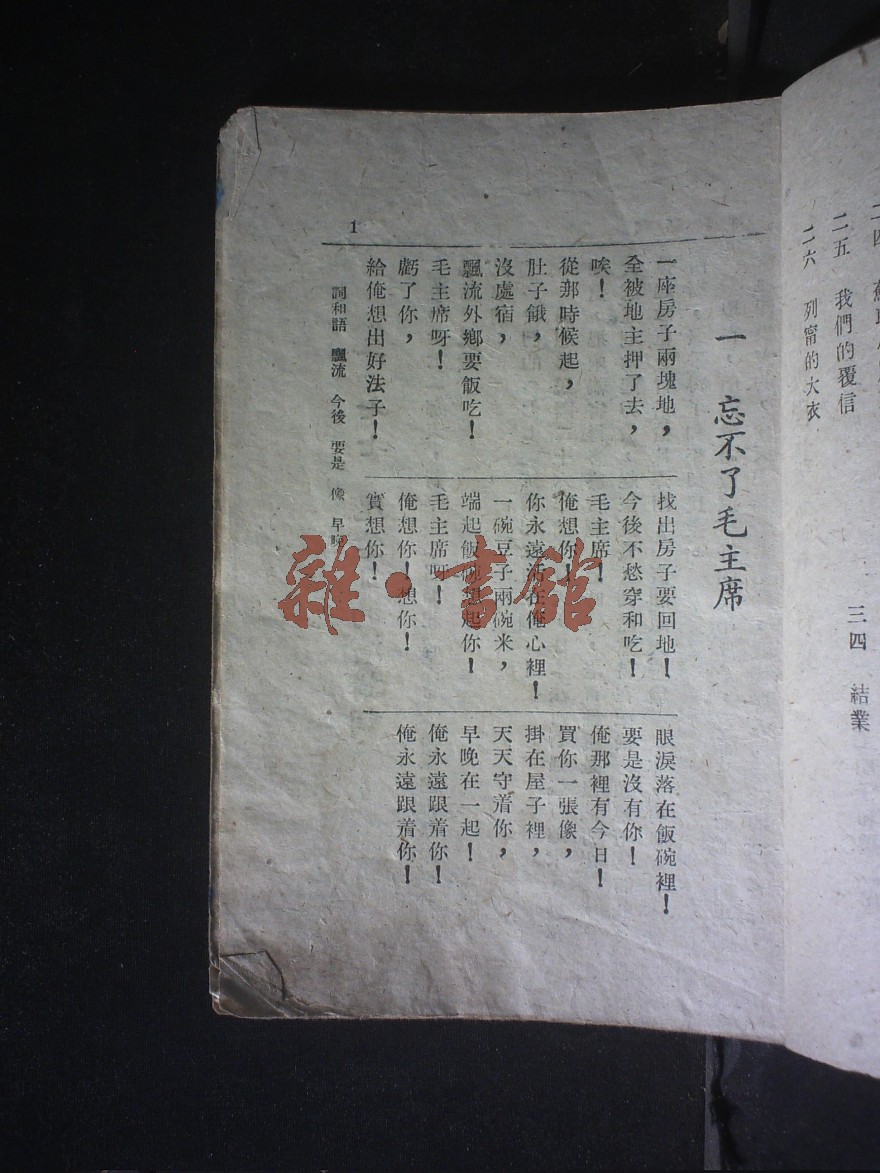 二五 我們的覆信
二六 列甯的大衣
三四 結業
一 忘不了毛主席
一座房子兩塊地，
全被地主押了去，
唉！
從那時候起，
肚子餓，
沒處宿，
飄流外鄉要飯吃！
毛主席呀！
虧了你，
給俺想出好法子！
找出房子要回地！
今後不愁穿和吃！
毛主席！
俺想你！
你永遠活在俺心裡！
一碗豆子兩碗米，
端起飯碗想起你！
毛主席呀！
俺想你！想你！
實想你！
眼淚落在飯碗裡！
要是沒有你！
俺那裡有今日！
買你一張像，
掛在屋子裡，
天天守着你，
早晚在一起！
俺永遠跟着你！
俺永遠跟着你！
詞和語 飄流 今後 要是 像 早晚
1
雜·書館